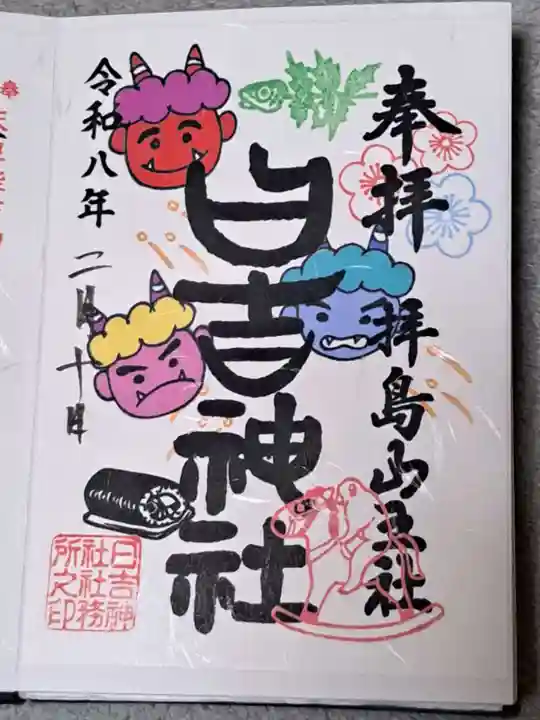 奉拝
拝島山王社
日吉神社
令和八年
二月十日
日吉神
社社務
所之印